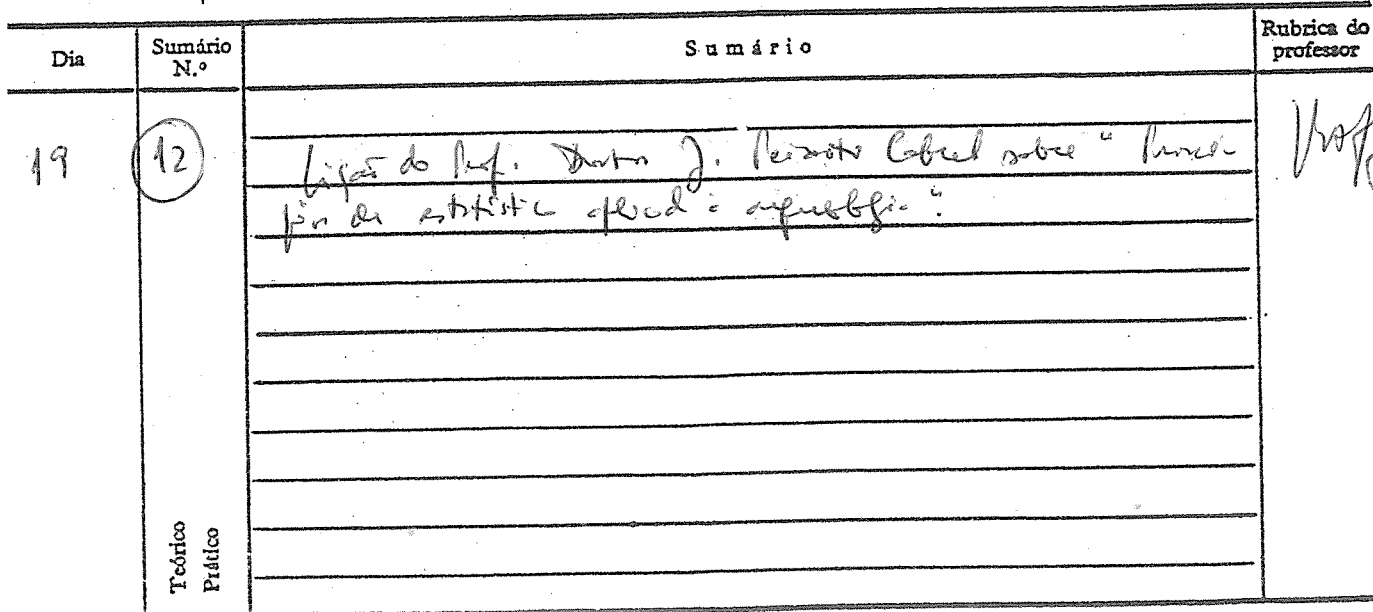 Dia
Sumário N.º
Sumário
Rubrica do professor
19
12
Lição do Prof. Doutor J. Peixoto Cabral sobre "
de estatística aplicada à arqueologia".
Teórico
Prático